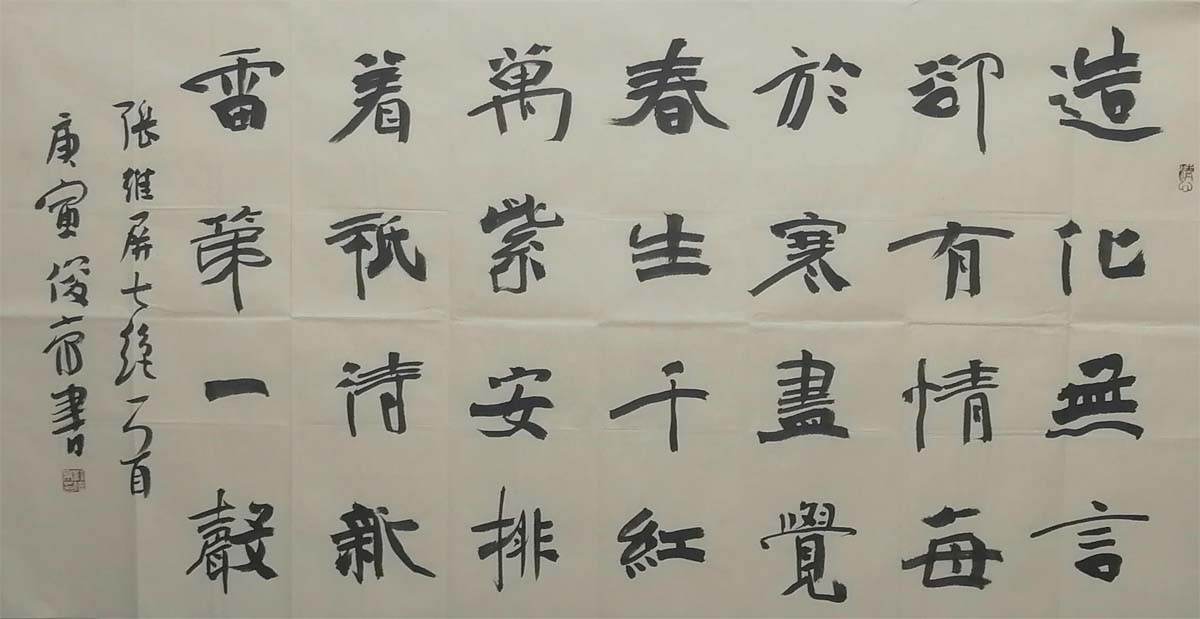 造化無言
卻有情每
於寒盡覺
春生千紅
萬紫安排
着祇待新
雷第一聲
張維屏七絕一首
庚寅俊書